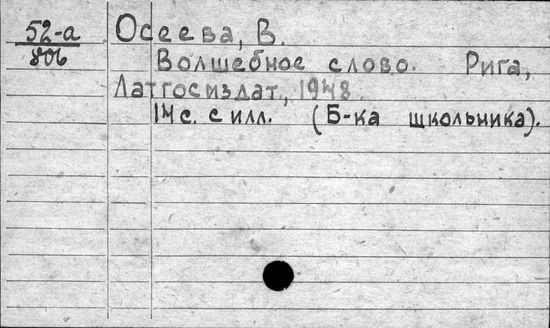 52-а Осеева, В.
806 Волшебное слово. Рига,
Латгосиздат, 1948.
14 с. с илл. (Б-ка школьника).